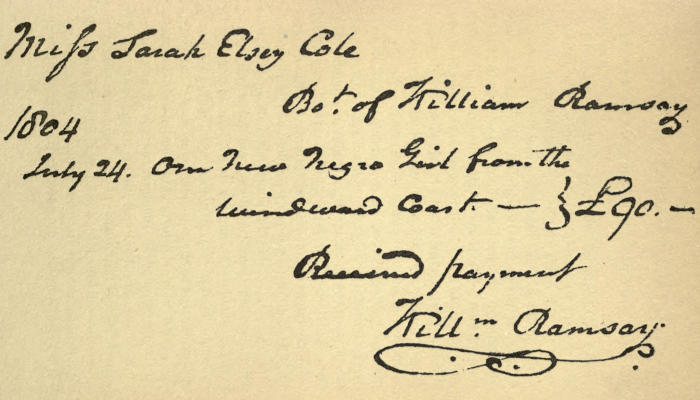 Miſs Sarah Elsey Cole
Bot. of William Ramsay
1804
July 24. One New Negro Girl from the
Windward Coast — } £90. —
Received payment
Willm Ramsay